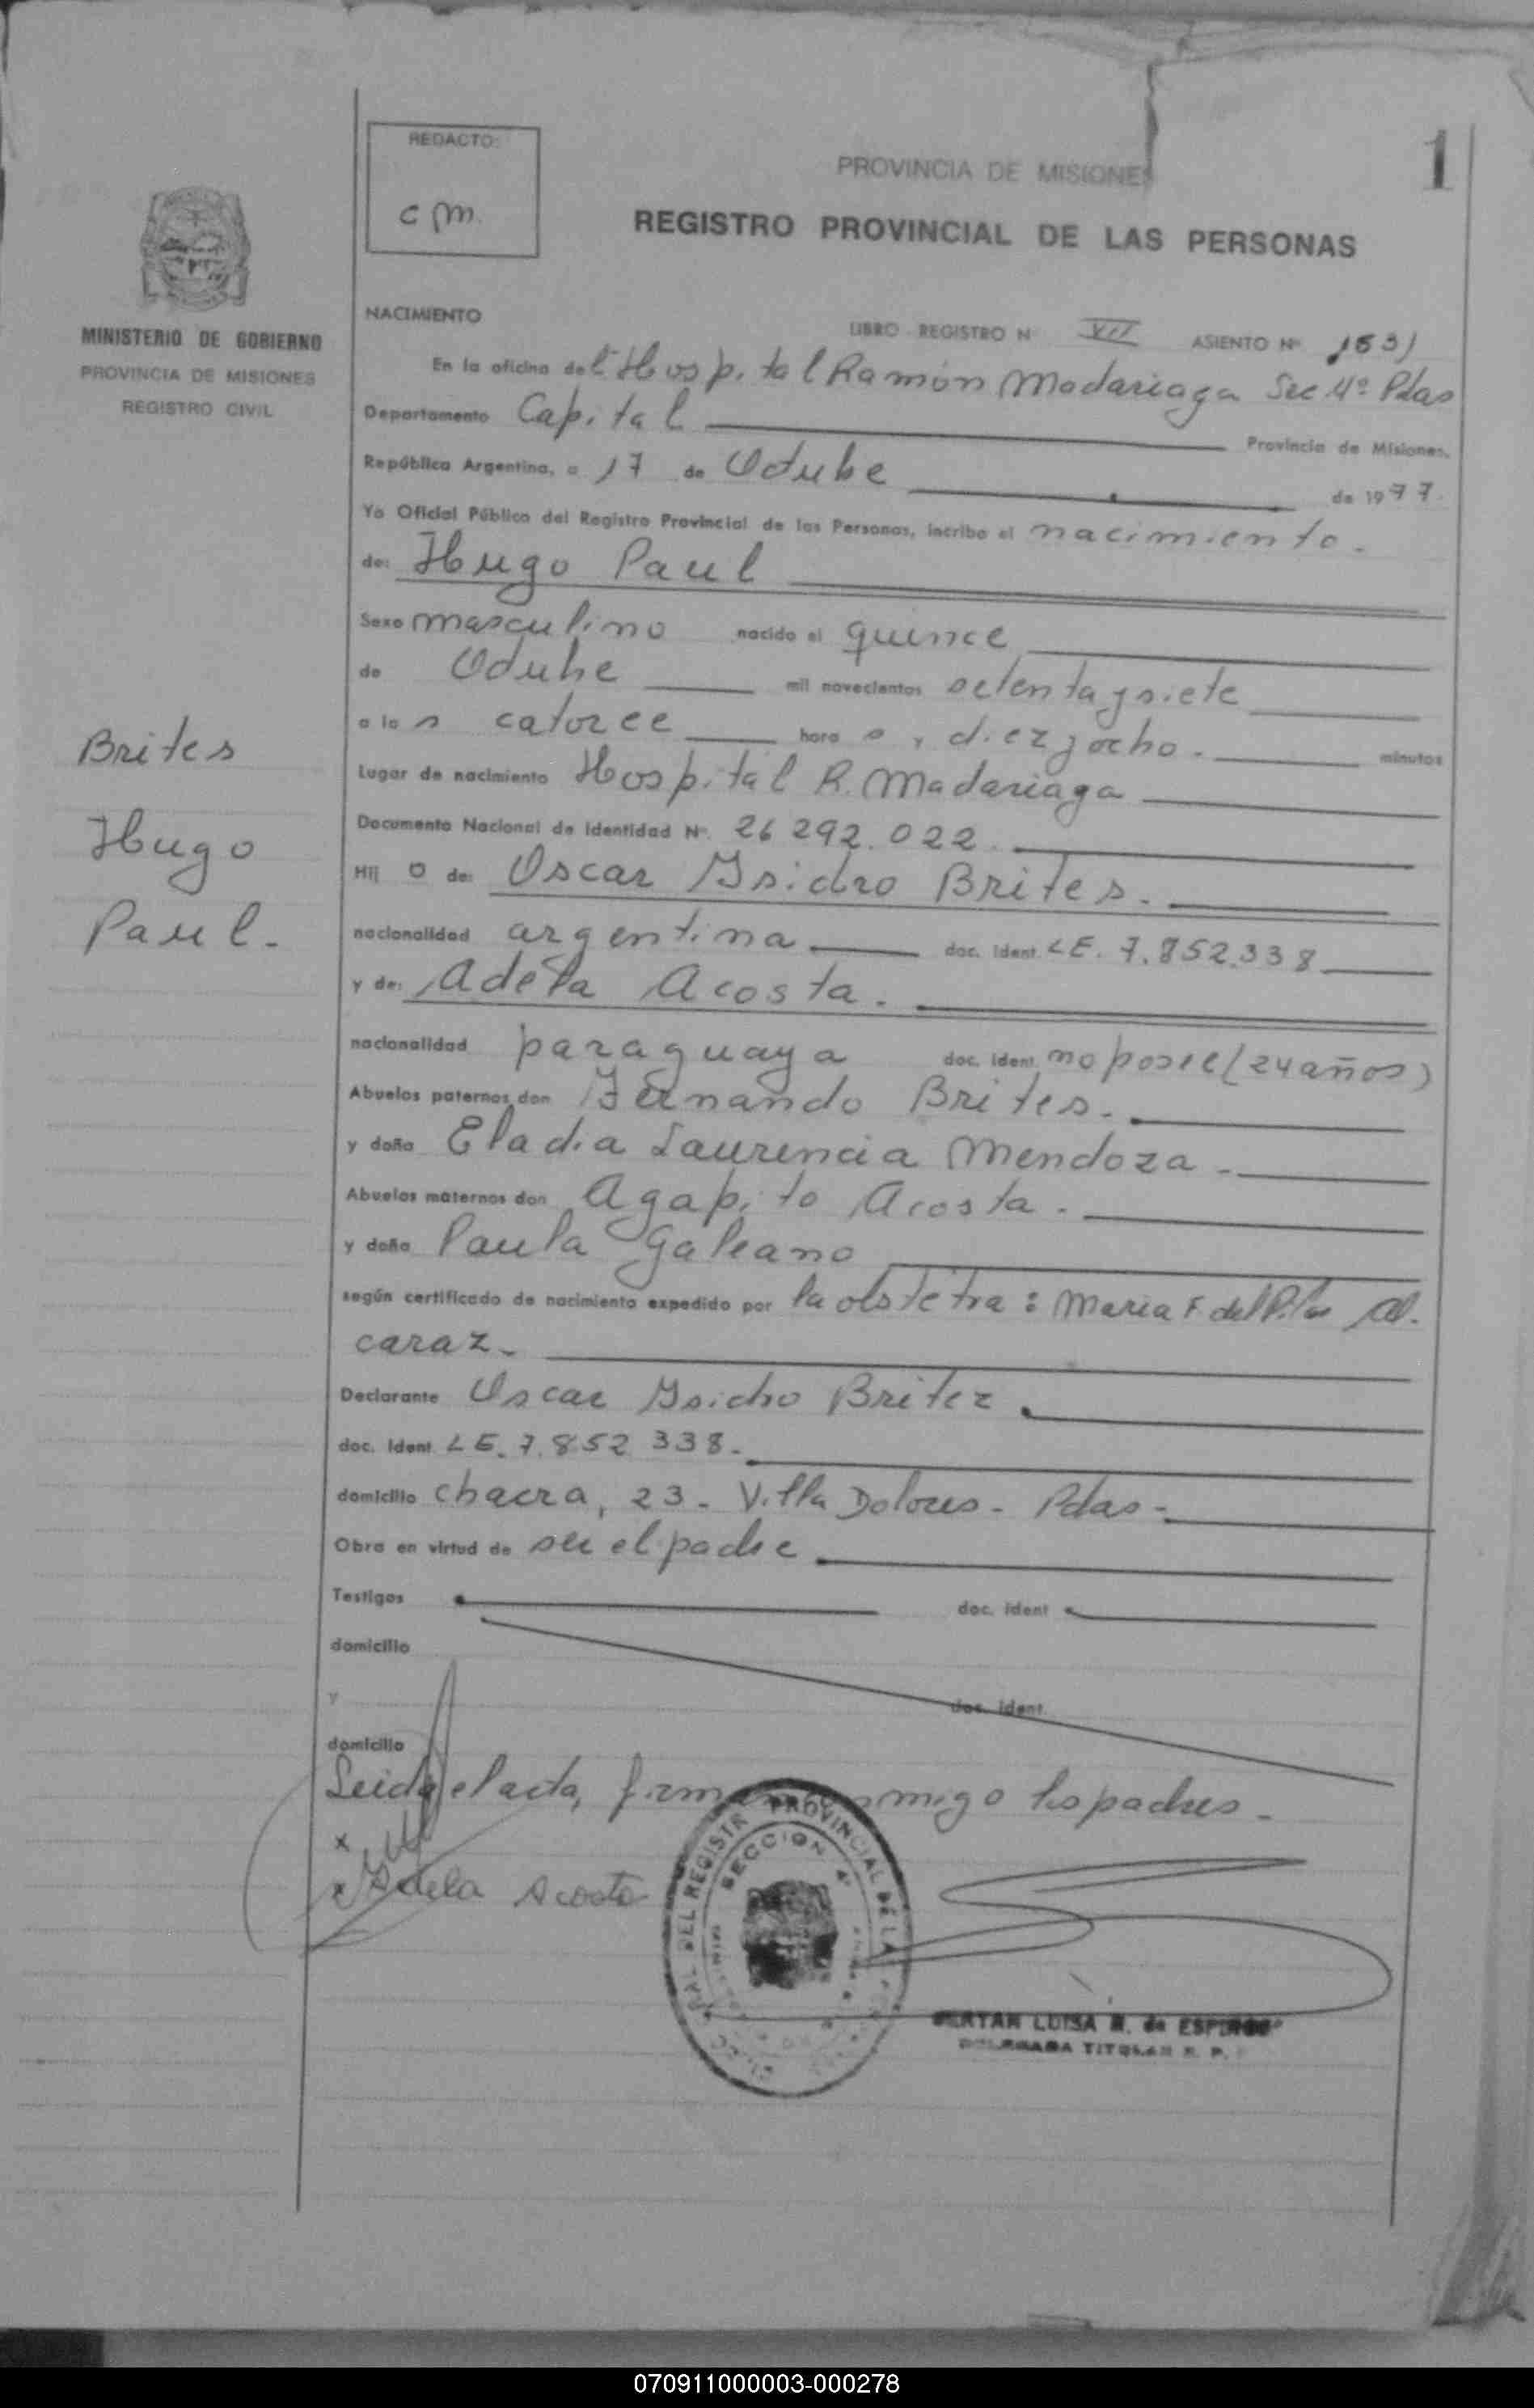 REDACTO:
c m.
1
PROVINCIA DE MISIONES
REGISTRO PROVINCIAL DE LAS PERSONAS
MINISTERIO DE GOBIERNO
PROVINCIA DE MISIONES
REGISTRO CIVIL
NACIMIENTO
LIBRO REGISTRO N VII ASIENTO Nº 1531
En la oficina del Hospital Ramón Madariaga Sec 4º Pdas
Departamento Capital Provincia de Misiones,
República Argentina, a 17 de Octubre de 1977.
Yo Oficial Público del Registro Provincial de las Personas, incribo el nacimiento.
de: Hugo Paul
Sexo masculino nacido el quince
de Octubre mil novecientos setenta y siete
a las catorce horas y diez y ocho. minutos
Lugar de nacimiento Hospital R. Madariaga
Documento Nacional de Identidad Nº. 26 292.022.
Hij o de: Oscar Isidro Brites.
nacionalidad argentina doc. ident. LE. 7.852.338
y de: Adela Acosta.
nacionalidad paraguaya doc. ident. no posee (24 años)
Abuelos paternos don Fernando Brites.
y doña Eladia Laurencia Mendoza.
Abuelos maternos don Agapito Acosta.
y doña Paula Galeano
según certificado de nacimiento expedido por la obstetra: Maria F. del Pilar Al.
caraz.
Declarante Oscar Isidro Britez.
doc. ident. LE. 7.852 338.
domicilio chacra, 23 - Villa Dolores - Pdas -
Obra en virtud de ser el padre
Testigos doc. ident
domicilio
y doc. ident.
domicilio
Leida el acta, firman conmigo los padres.
x
x Adela Acosta
Brites
Hugo
Paul.
DEL REGISTR PROVINCIAL DE LA
SECCION 4ª
LUISA R. de
TITULAR R. P.
070911000003-000278